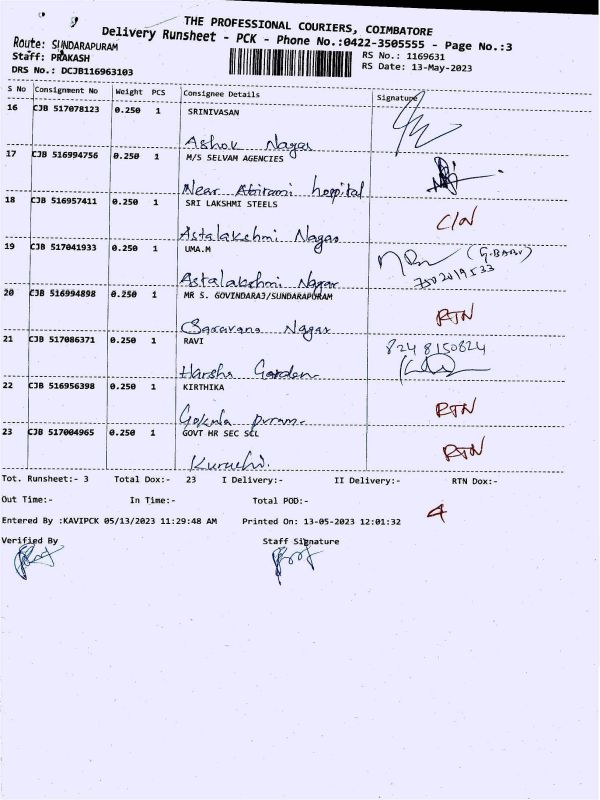 THE PROFESSIONAL COURIERS, COIMBATORE
Delivery Runsheet - PCK - Phone No.:0422-3505555 - Page No.:3
Route: SUNDARAPURAM
Staff: PRAKASH
RS No.: 1169631
DRS No.: DCJB116963103
RS Date: 13-May-2023
S No Consignment No Weight PCS Consignee Details Signature
16 CJB 517078123 0.250 1 SRINIVASAN
Ashok Nagar
17 CJB 516994756 0.250 1 M/S SELVAM AGENCIES
Near Abirami hospital
18 CJB 516957411 0.250 1 SRI LAKSHMI STEELS C/N
Astalakshmi Nagar
19 CJB 517041933 0.250 1 UMA.M (G.BABU)
7502019533
Astalakshmi Nagar
20 CJB 516994898 0.250 1 MR S. GOVINDARAJ/SUNDARAPURAM RTN
Saravana Nagar
21 CJB 517086371 0.250 1 RAVI 8248150824
Harsha Garden
22 CJB 516956398 0.250 1 KIRTHIKA RTN
Gokula puram
23 CJB 517004965 0.250 1 GOVT HR SEC SCL RTN
Kuruchi.
Tot. Runsheet:- 3 Total Dox:- 23 I Delivery:- II Delivery:- RTN Dox:-
Out Time:- In Time:- Total POD:- 4
Entered By :KAVIPCK 05/13/2023 11:29:48 AM Printed On: 13-05-2023 12:01:32
Verified By Staff Signature